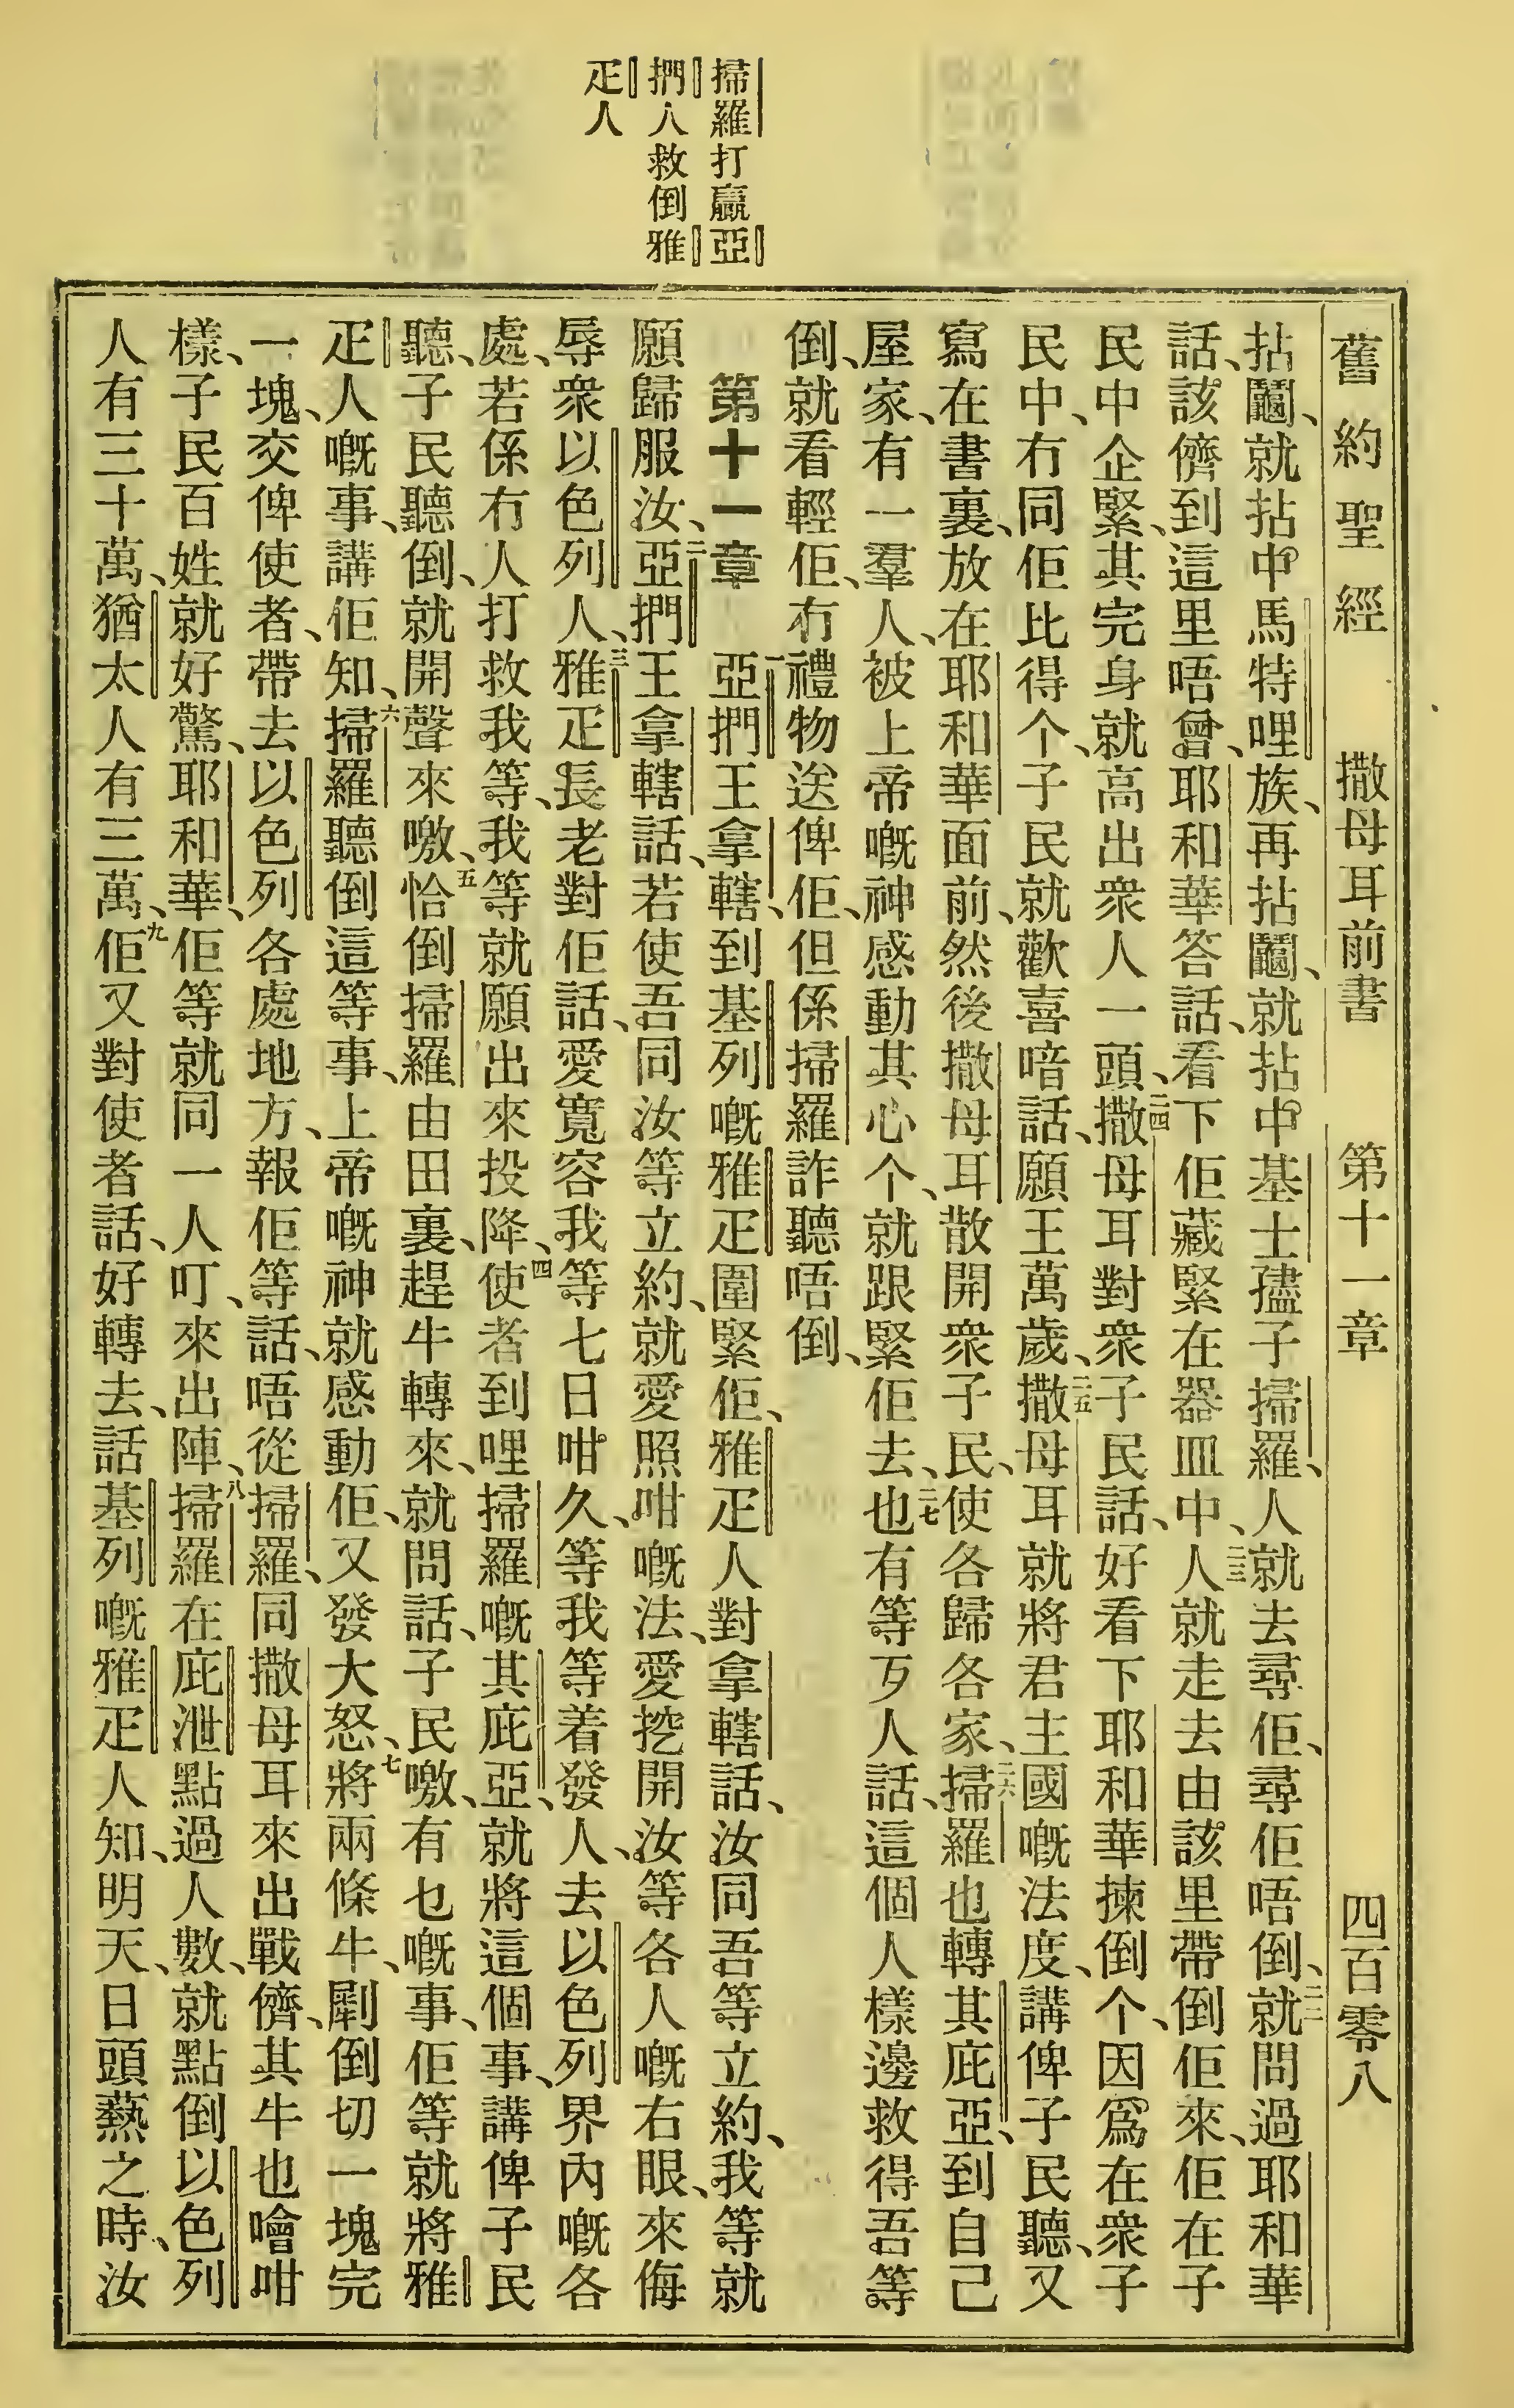 舊約聖經 撒母耳前書 第十一章 四百零八
掃羅打贏亞
捫人救倒雅
疋人
拈鬮、就拈中馬特哩族、再拈鬮、就拈中基士孻子掃羅、人就去尋佢、尋佢唔倒、二二就問過耶和華
話、該儕到這里唔曾、耶和華答話、看下佢藏緊在器皿中、二三人就走去由該里帶倒佢來、佢在子
民中企緊、其完身就高出衆人一頭、二四撒母耳對衆子民話、好看下耶和華揀倒个、因爲在衆子
民中、冇同佢比得个、子民就歡喜喑話、願王萬歲、二五撒母耳就將君主國嘅法度、講俾子民聽、又
寫在書裏、放在耶和華面前、然後撒母耳散開衆子民、使各歸各家、二六掃羅也轉其庇亞、到自己
屋家、有一羣人、被上帝嘅神感動其心个、就跟緊佢去、二七也有等歹人話、這個人樣邊救得吾等
倒、就看輕佢、冇禮物送俾佢、但係掃羅詐聽唔倒、
第十一章 一亞捫王拿轄、到基列嘅雅疋圍緊佢、雅疋人對拿轄話、汝同吾等立約、我等就
願歸服汝、二亞捫王拿轄話、若使吾同汝等立約、就愛照咁嘅法、愛挖開汝等各人嘅右眼、來侮
辱衆以色列人、三雅疋長老對佢話、愛寬容我等七日咁久、等我等着發人、去以色列界內嘅各
處、若係冇人打救我等、我等就願出來投降、四使者到哩掃羅嘅其庇亞、就將這個事、講俾子民
聽、子民聽倒、就開聲來噭、五恰倒掃羅由田裏、趕牛轉來、就問話、子民噭、有乜嘅事、佢等就將雅
疋人嘅事、講佢知、六掃羅聽倒這等事、上帝嘅神就感動佢、又發大怒、七將兩條牛、劚倒切一塊完
一塊、交俾使者、帶去以色列各處地方、報佢等話、唔從掃羅、同撒母耳來出戰儕、其牛也噲咁
樣、子民百姓就好驚、耶和華、佢等就同一人叮、來出陣、八掃羅在庇泄點過人數、就點倒以色列
人有三十萬、猶太人有三萬、九佢又對使者話、好轉去、話基列嘅雅疋人知、明天、日頭㷶之時、汝